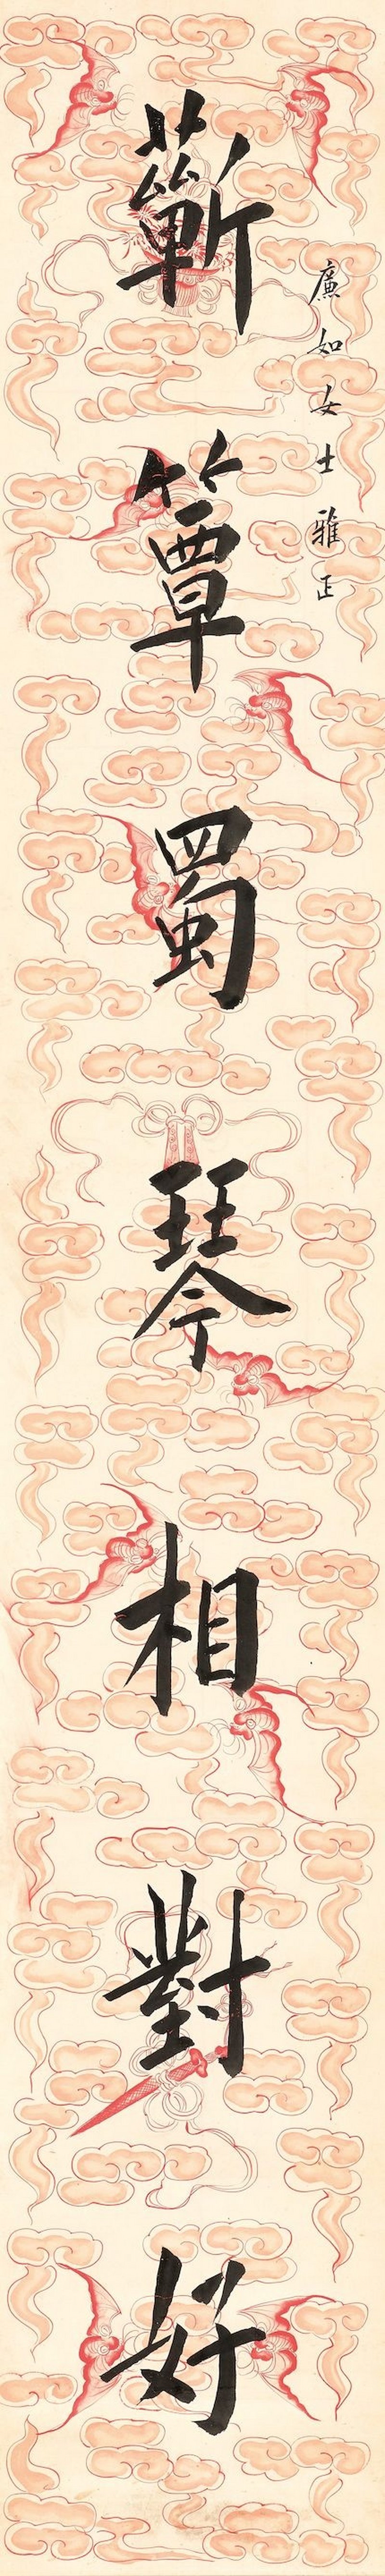 廉如女士雅正
蘄簟蜀琴相對好